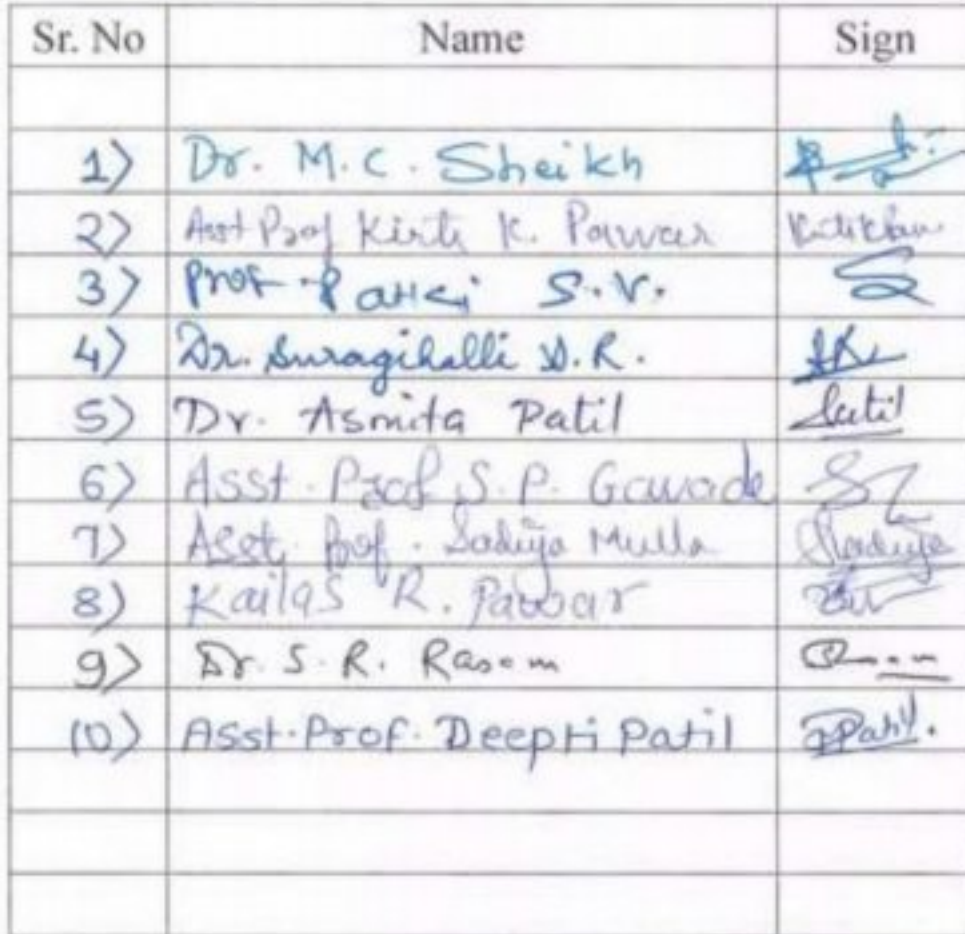 Sr. No Name Sign
1) Dr. M.C. Sheikh
2) Asst Prof Kirti K. Pawar
3) Prof. S.V.
4) Dr. Suragihalli D.R.
5) Dr. Asmita Patil Patil
6) Asst. Prof S.P. Gawade
7) Asst. Prof. Sadiya Mulla Sadiya
8) Kailas R. Pawar
9) Dr. S.R. Rasam
10) Asst. Prof. Deepti Patil DPatil.